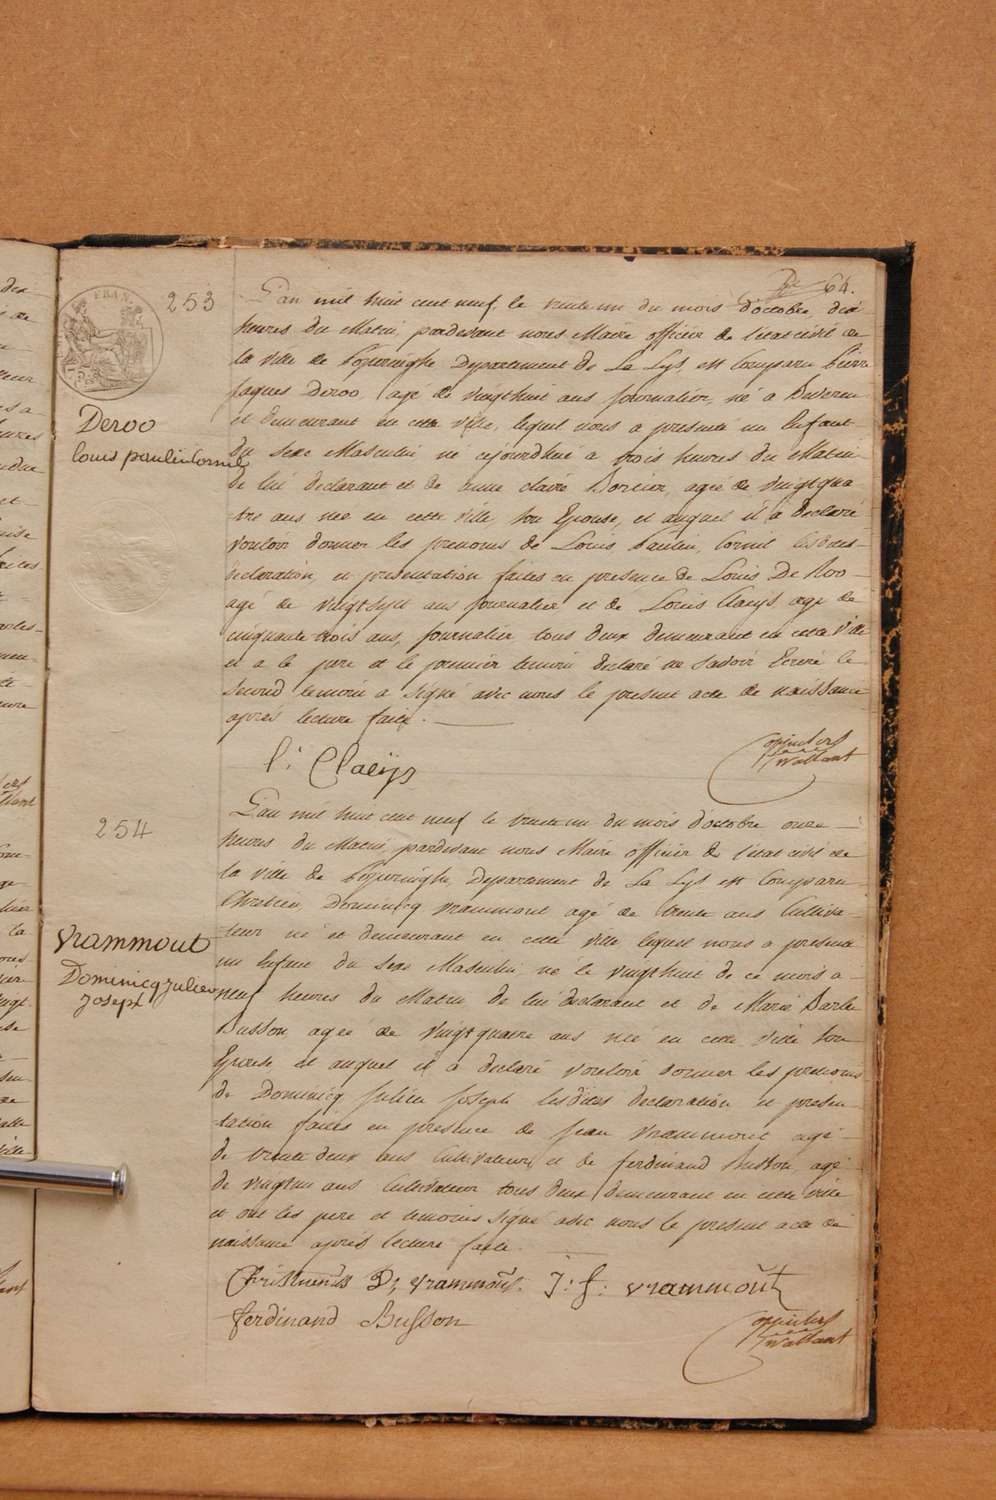 64.
253
L'an mil huit cent neuf, le trente un du mois d'octobre, dix
heures du Matin, pardevant nous Maire officier de l'état civil de
la ville de Poperinghe Departement de La Lys, est Comparu Pierre
Jaques Deroo, agé de vingthuit ans journalier, né à
et demeurant en cette ville, lequel nous a presenté un Enfant
du sexe Masculin né cejourdhui a trois heures du Matin
de lui declarant et de anne claire agée de vingtqua-
tre ans née en cette ville, son Epouse, et auquel il a declaré
vouloir donner les prenoms de Louis Paulin, Cornil lesdites
declaration, et presentation faites en presence de Louis De Roo
agé de vingtsept ans journalier et de Louis Claeijs, agé de
cinquante trois ans, journalier, tous deux demeurant en cette Ville
et a le pere et le premier temoin declaré ne savoir Ecrire le
second temoin a signé avec nous le present acte de naissance
après lecture faite.
Deroo
louis paulin Cornil
l: Claeijs
254
L'an mil huit cent neuf le trente un du mois d'octobre onze
heures du Matin, pardevant nous Maire officier de l'état civil de
la ville de Poperinghe, Departement de La Lys est Comparu
Chretien, Dominicq Vrammout agé de trente ans Cultiva-
teur né et demeurant en cette ville lequel nous a presenté
un Enfant du sexe Masculin, né le vingthuit de ce mois a
neuf heures du Matin de lui declarant et de Marie Barbe
Busson, agée de vingtquatre ans née en cette ville son
Epouse, et auquel il a declaré vouloir donner les prenoms
de Dominicq Julien Joseph lesdites declaration et presen-
tation faites en presence de Jean Vrammout agé
de trente deux ans Cultivateur, et de ferdinand Busson, agé
de vingtun ans Cultivateur tous deux demeurant en cette ville
et ont les pere et temoins signé avec nous le present acte de
naissance après lecture faite.
Vrammout
Dominicq Julien
Joseph
D: Vrammout. J: f: Vrammout
ferdinand Busson